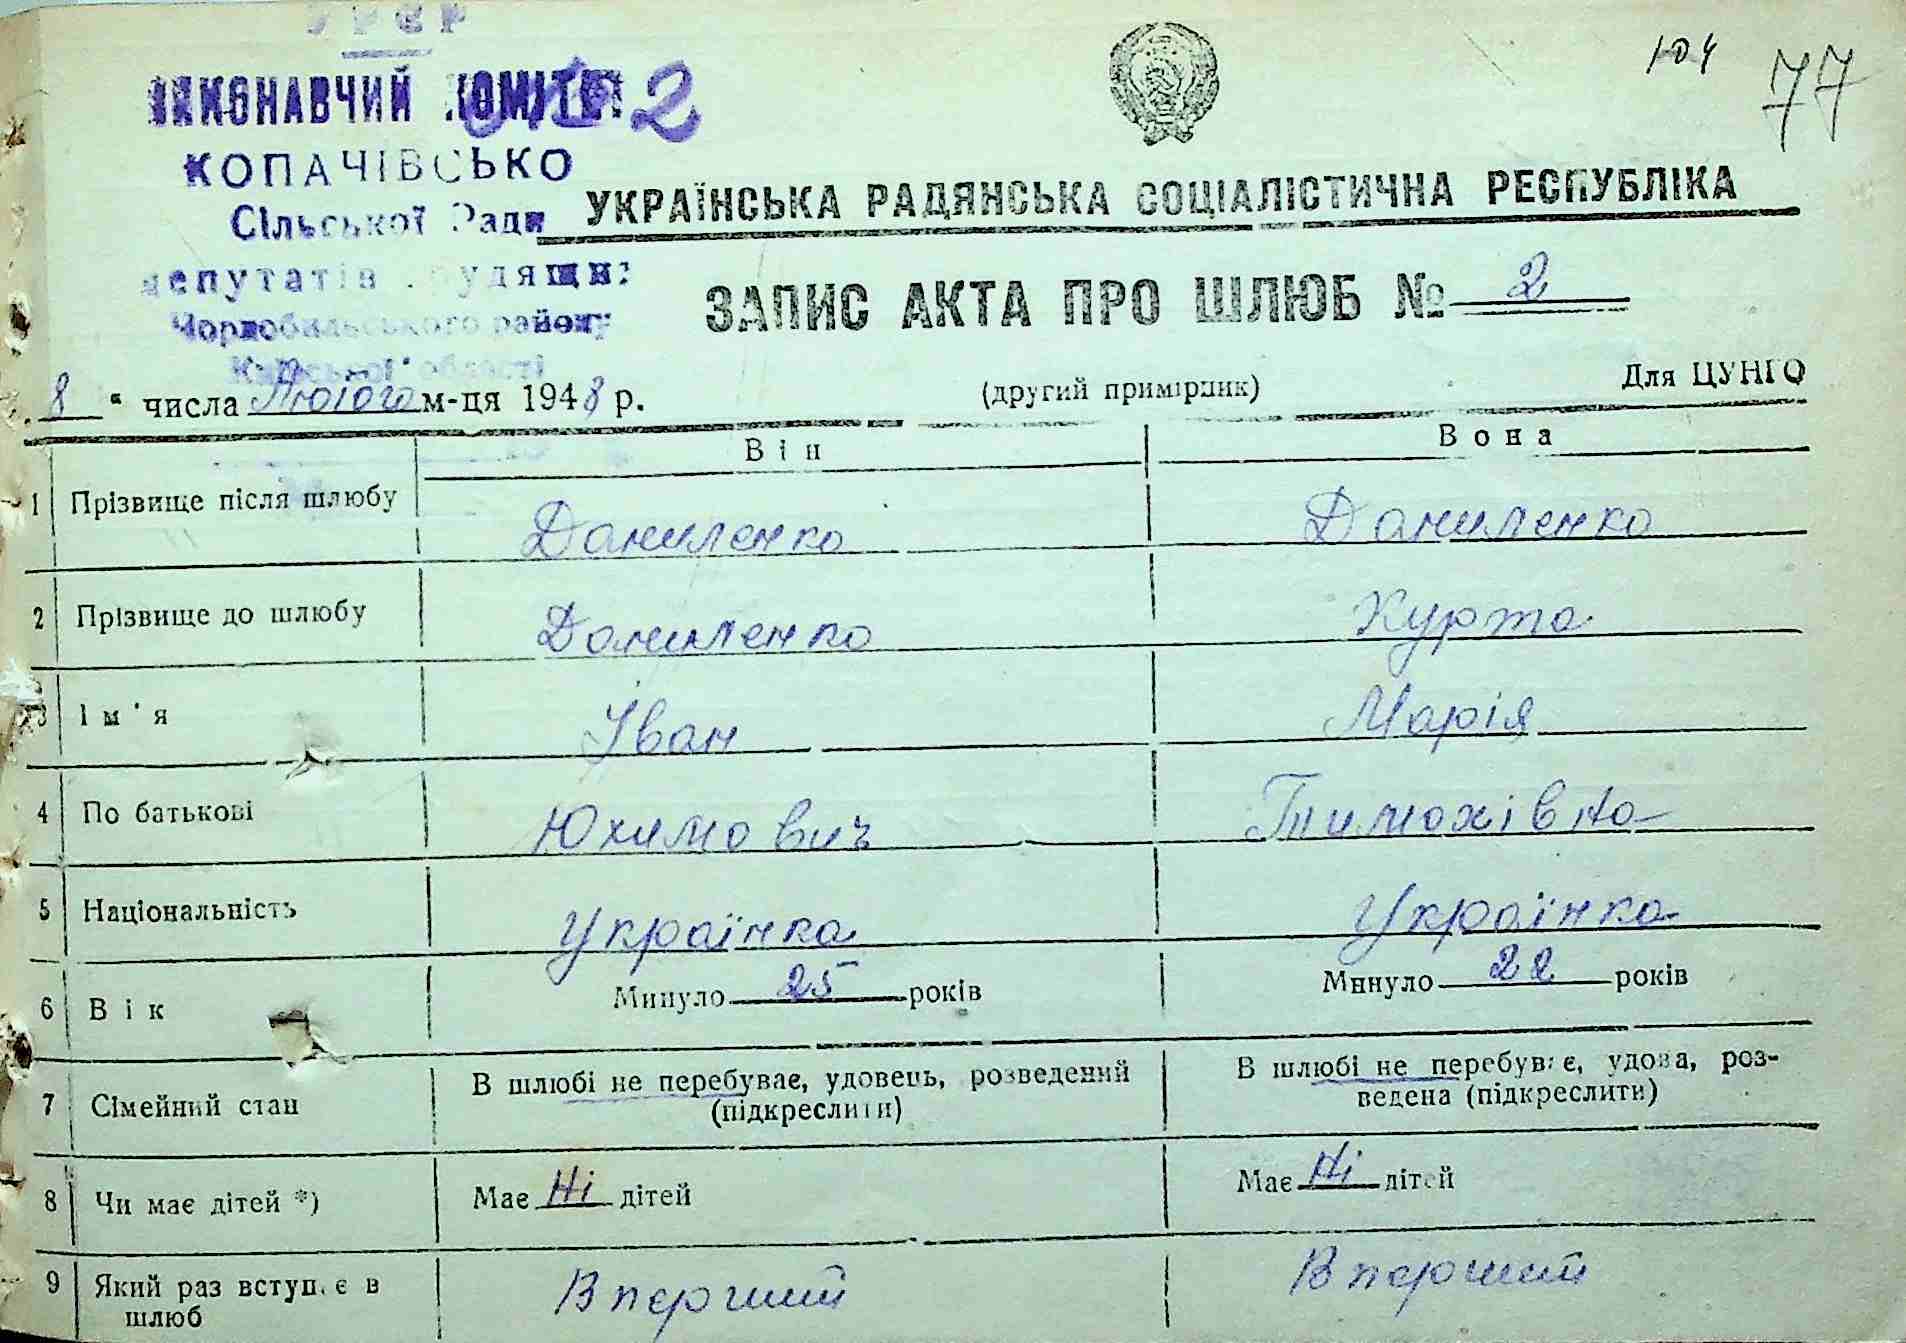 УРСР
ВИКОНАВЧИЙ КОМІТЕТ
2
КОПАЧІВСЬКО
Сільської Ради
депутатів трудящих
Чорнобильського району
Київської області
104
77
УКРАЇНСЬКА РАДЯНСЬКА СОЦІАЛІСТИЧНА РЕСПУБЛІКА
ЗАПИС АКТА ПРО ШЛЮБ № 2
8 " числа Лютого м-ця 1948 р.
(другий примірник)
Для ЦУНГО
Він
Вона
1 Прізвище після шлюбу Даниленко Даниленко
2 Прізвище до шлюбу Даниленко Курта
3 Ім'я Іван Марія
4 По батькові Юхимович Тимохівна
5 Національність Українка Українка
6 Вік Минуло 25 років Минуло 22 років
7 Сімейний стан В шлюбі не перебуває, удовець, розведений (підкреслити) В шлюбі не перебуває, удова, роз-
ведена (підкреслити)
8 Чи має дітей *) Має Ні дітей Має Ні дітей
9 Який раз вступає в шлюб Вперший Вперший